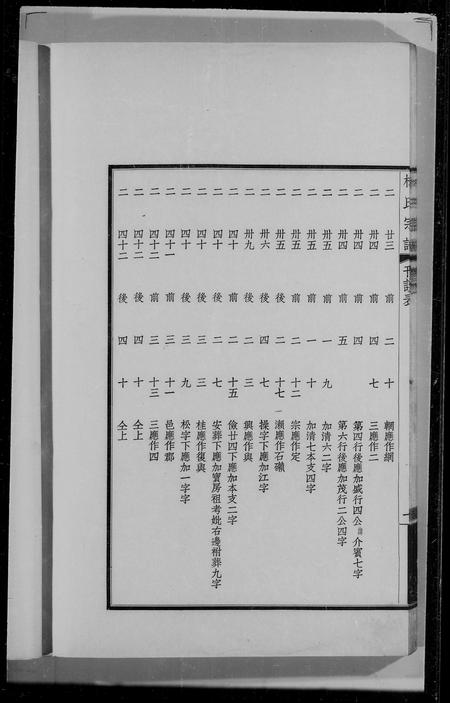 宗譜
刊誤表
二 廿三 前 二 十 輞應作網
二 卅四 前 四 七 三應作二
二 卅四 前 四 第四行後應加盛行四公 介賓七字
二 卅四 前 五 第六行後應加茂行二公四字
二 卅五 後 一 九 加清六二字
二 卅五 前 一 十 加清七本支四字
二 卅五 前 二 十二 宗應作定
二 卅五 後 二 十七 瀨應作石瀨
二 卅六 後 四 七 操字下應加江字
二 卅九 後 二 三 興應作與
二 四十 前 二 十五 儉廿四下應加本支二字
二 四十 後 二 七 安葬下應加寶房祖考妣右邊祔葬九字
二 四十 後 三 三 桂應作復興
二 四十 後 三 九 松字下應加一字字
二 四十一 前 三 十一 邑應作鄒
二 四十二 前 三 十三 三應作四
二 四十二 後 四 十 仝上
二 四十二 後 四 十 仝上